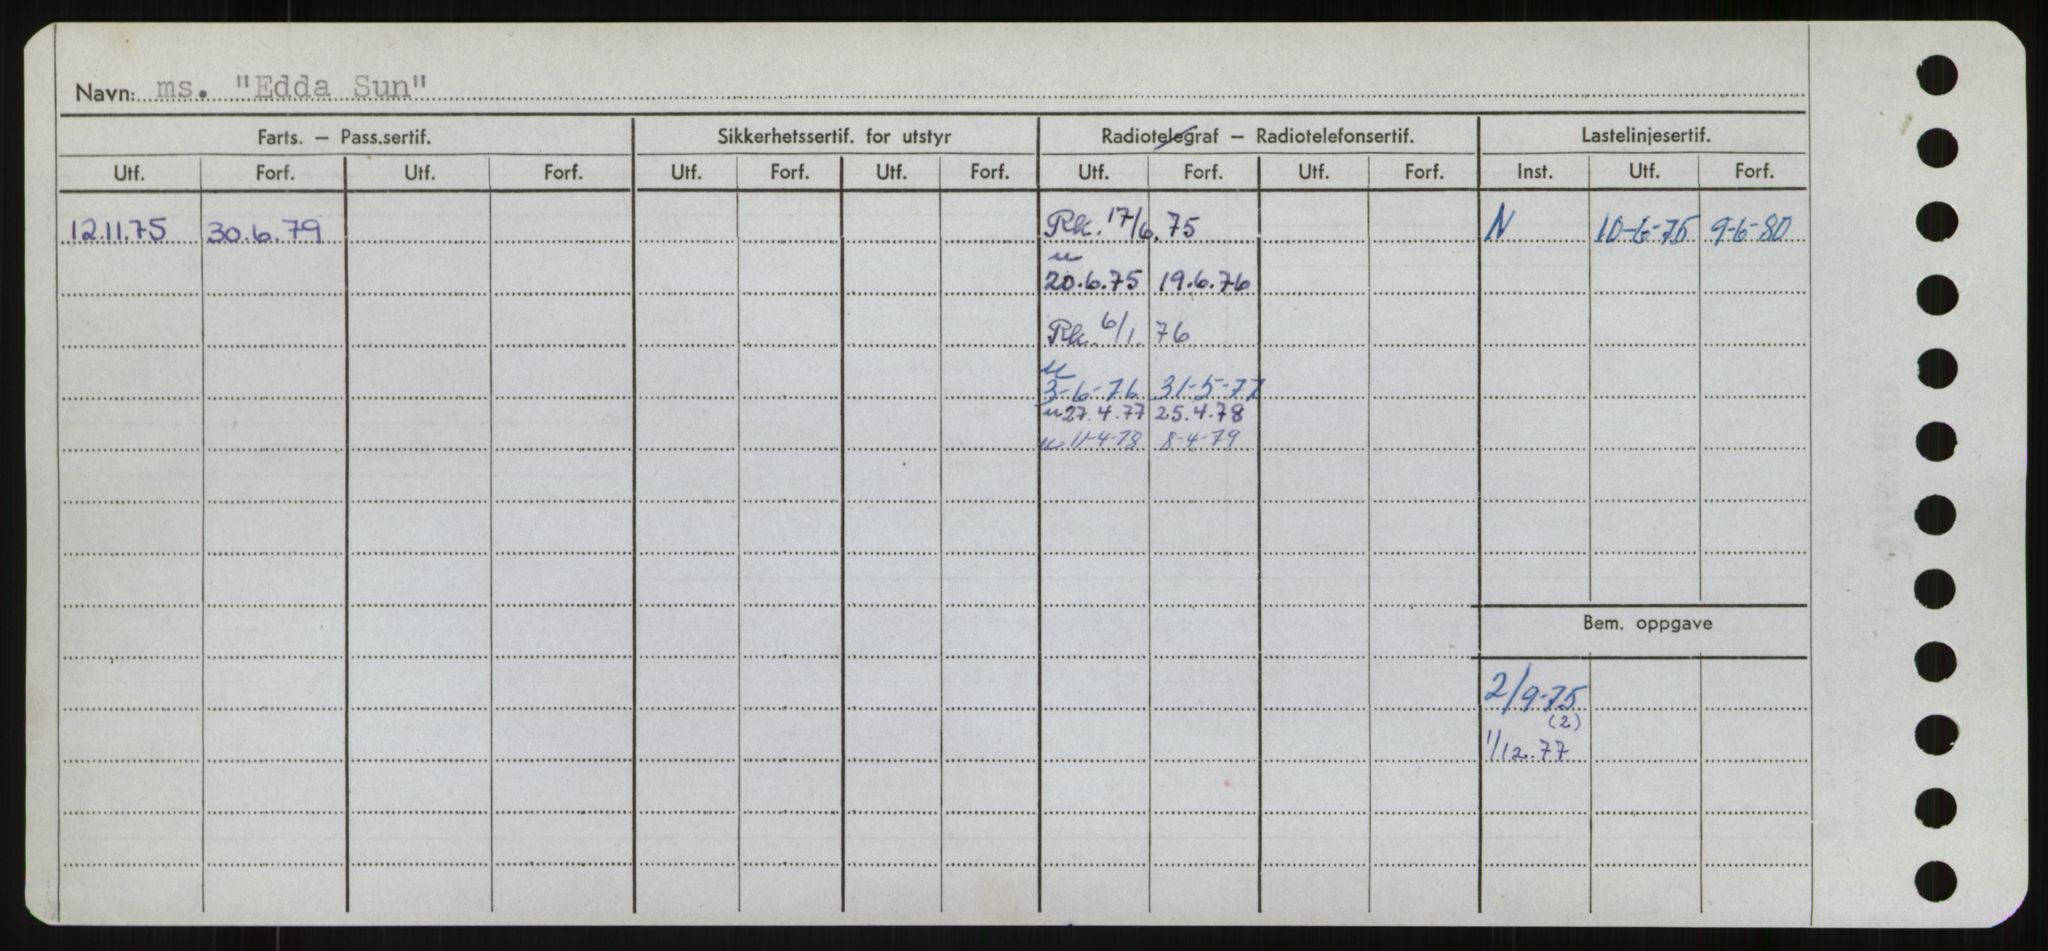 Navn: ms. "Edda Sun"
Farts. – Pass.sertif. Sikkerhetssertif. for utstyr Radiotelegraf – Radiotelefonsertif. Lastelinjesertif.
Utf. Forf. Utf. Forf. Utf. Forf. Utf. Forf. Utf. Forf. Utf. Forf. Inst. Utf. Forf.
12.11.75 30.6.79 Rk. 17/6.75 N 10-6-75 9-6-80
u
20.6.75 19.6.76
Rk. 6/1. 76
u
3-6-76 31-5-77
u 27.4.77 25.4.78
u 11-4-78 8-4-79
Bem. oppgave
2/9-75
(2)
1/12.77